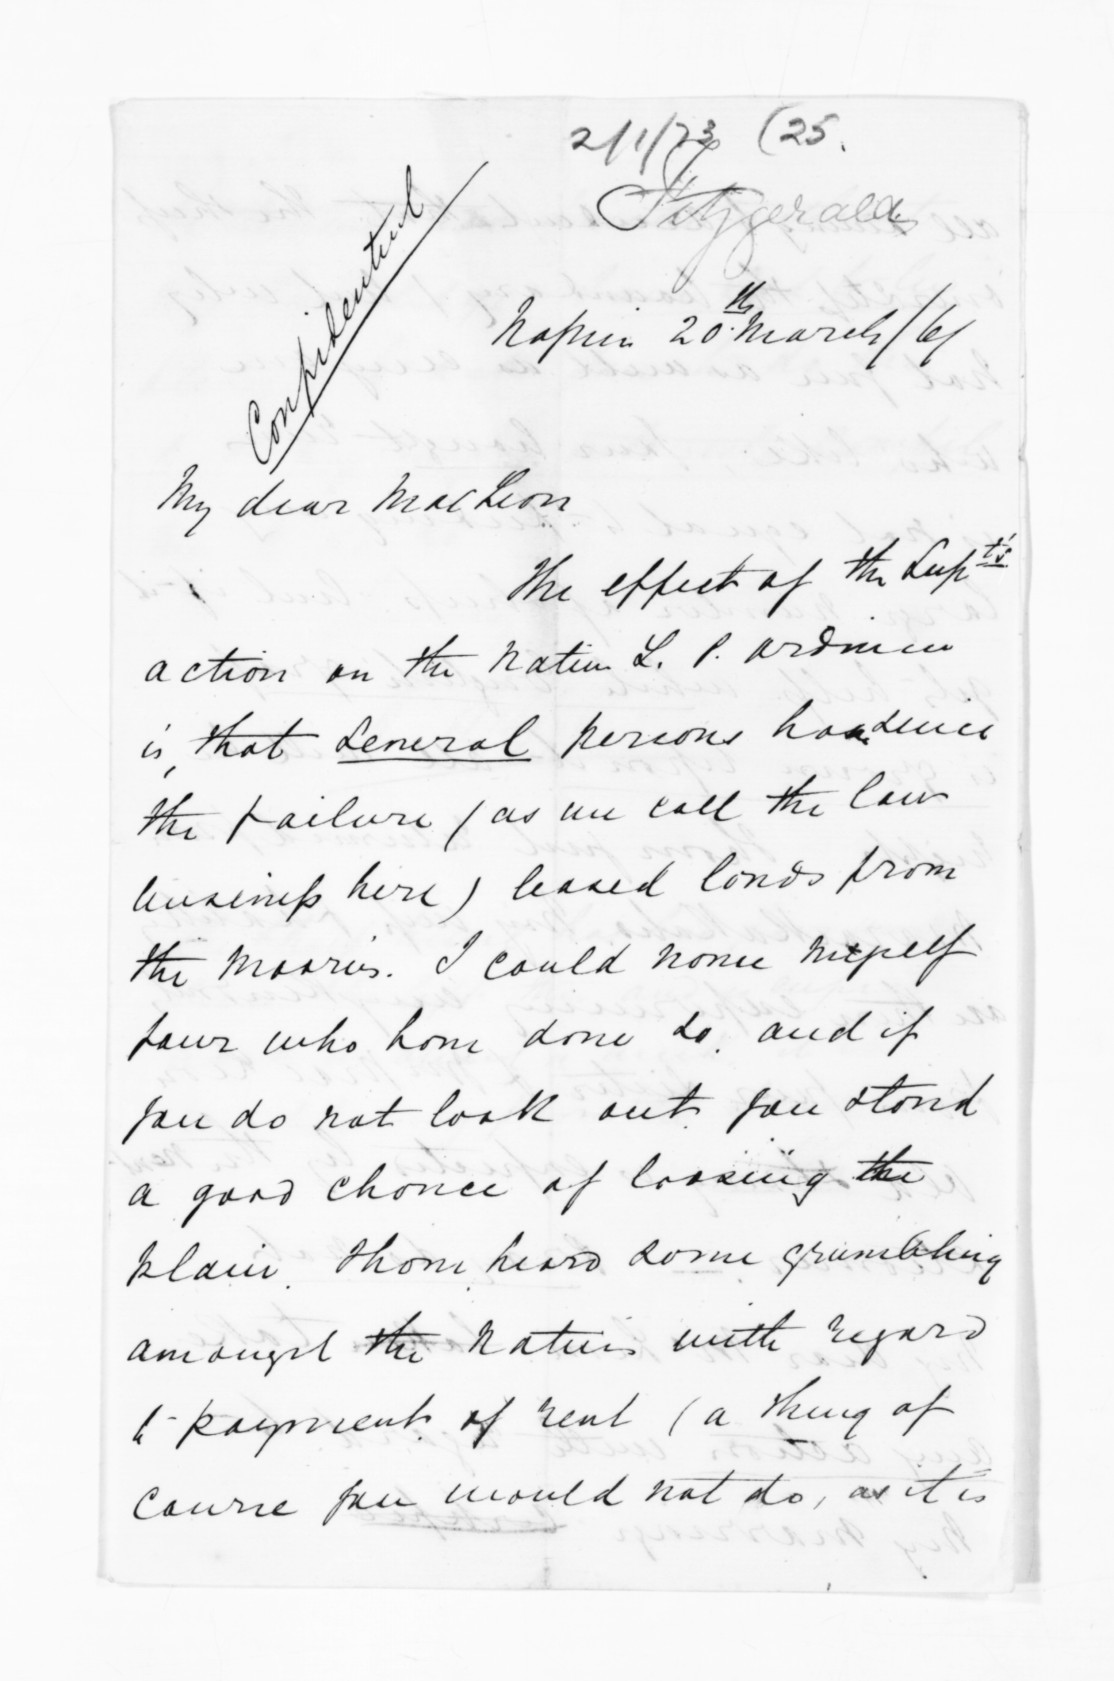 2/1/73 (25.
Fitzgerald
Confidential
Napier 20th March/61
My dear MacLean
The effect of the Supt's
action on the Native L. P. Ordinance
is, that several persons have since
the failure (as we call the law
business here) leased lands from
the Maories. I could name myself
four who have done so, and if
you do not look out, you stand
a good chance of loosing the
plain. I have heard some grumbling
amongst the Natives with regard
to payment of rent (a thing of
course you would not do, as it is